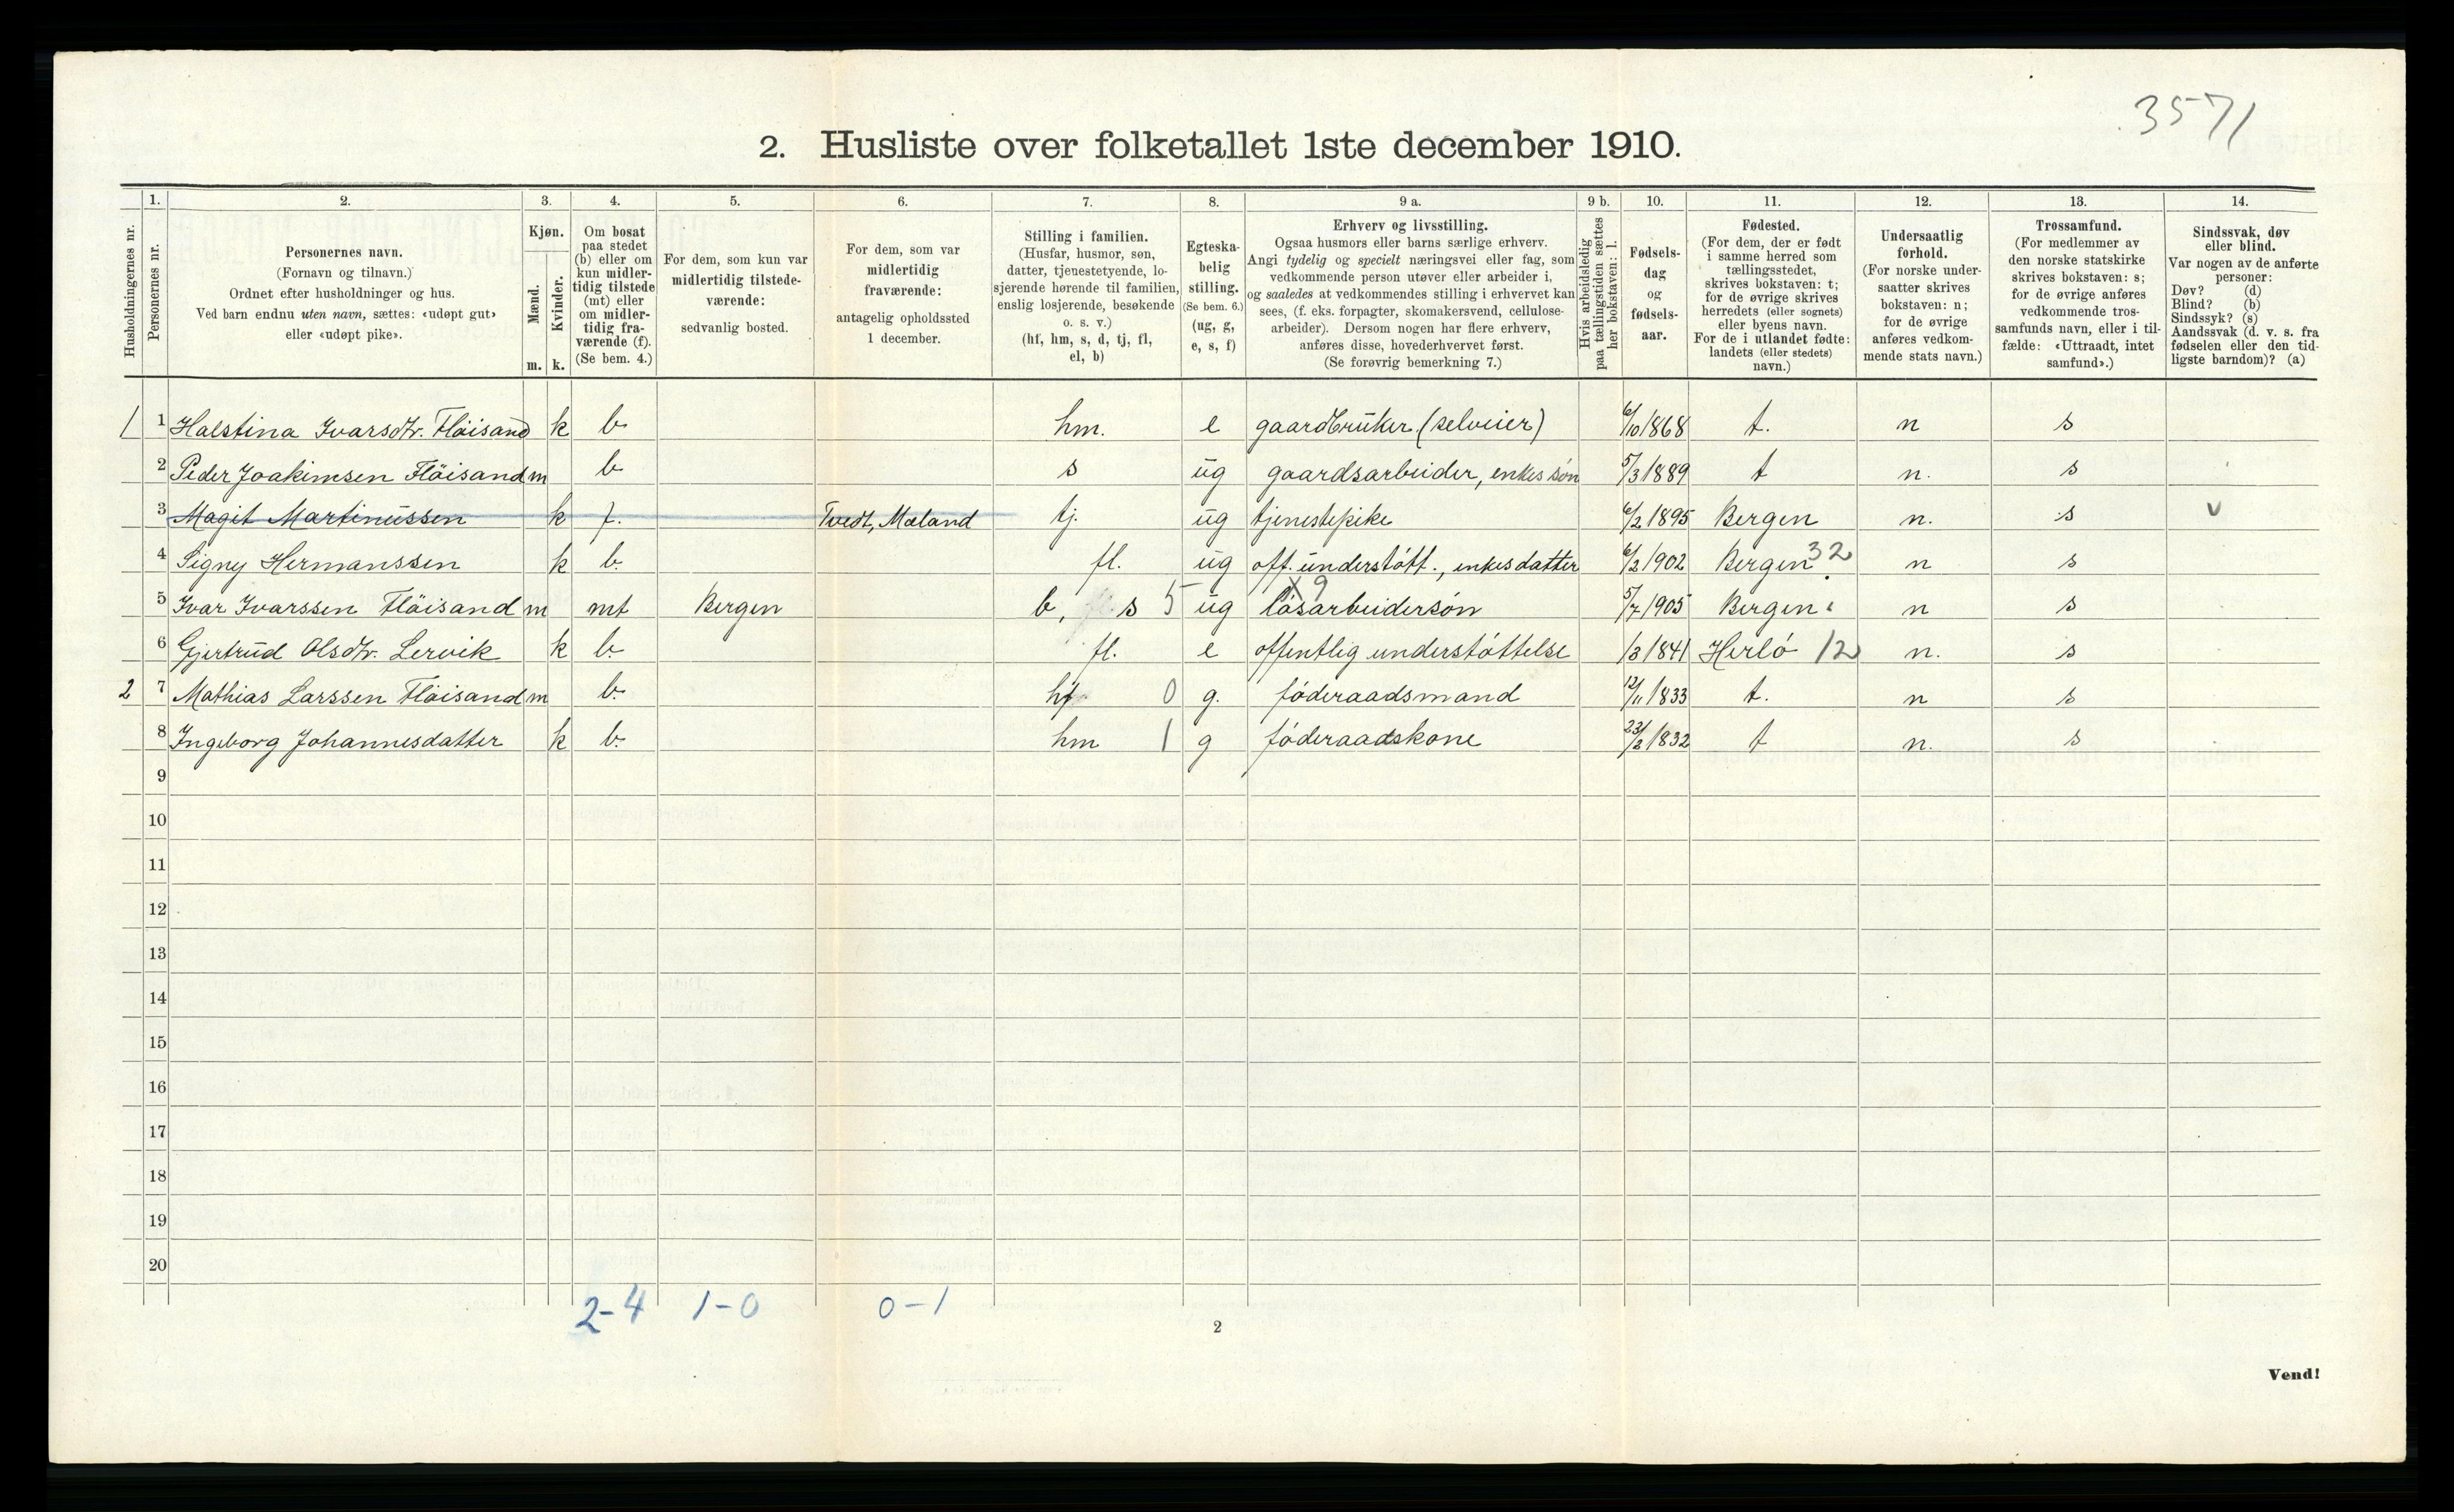 3571
2. Husliste over folketallet 1ste december 1910.
Husholdningernes nr.
1.
Personernes nr.
2.
Personernes navn.
(Fornavn og tilnavn.)
Ordnet efter husholdninger og hus.
Ved barn endnu uten navn, sættes: «udøpt gut»
eller «udøpt pike».
3.
Kjøn.
Mænd.
Kvinder.
m. k.
4.
Om bosat
paa stedet
(b) eller om
kun midler-
tidig tilstede
(mt) eller
om midler-
tidig fra-
værende (f).
(Se bem. 4.)
5.
For dem, som kun var
midlertidig tilstede-
værende:
sedvanlig bosted.
6.
For dem, som var
midlertidig
fraværende:
antagelig opholdssted
1 december.
7.
Stilling i familien.
(Husfar, husmor, søn,
datter, tjenestetyende, lo-
sjerende hørende til familien,
enslig losjerende, besøkende
o. s. v.)
(hf, hm, s, d, tj, fl,
el, b)
8.
Egteska-
belig
stilling.
(Se bem. 6.)
(ug, g,
e, s, f)
9 a.
Erhverv og livsstilling.
Ogsaa husmors eller barns særlige erhverv.
Angi tydelig og specielt næringsvei eller fag, som
vedkommende person utøver eller arbeider i,
og saaledes at vedkommendes stilling i erhvervet kan
sees, (f. eks. forpagter, skomakersvend, cellulose-
arbeider). Dersom nogen har flere erhverv,
anføres disse, hovederhvervet først.
(Se forøvrig bemerkning 7.)
9 b.
Hvis arbeidsledig
paa tællingstiden sættes
her bokstaven: l.
10.
Fødsels-
dag
og
fødsels-
aar.
11.
Fødested.
(For dem, der er født
i samme herred som
tællingsstedet,
skrives bokstaven: t;
for de øvrige skrives
herredets (eller sognets)
eller byens navn.
For de i utlandet fødte:
landets (eller stedets)
navn.)
12.
Undersaatlig
forhold.
(For norske under-
saatter skrives
bokstaven: n;
for de øvrige
anføres vedkom-
mende stats navn.)
13.
Trossamfund.
(For medlemmer av
den norske statskirke
skrives bokstaven: s;
for de øvrige anføres
vedkommende tros-
samfunds navn, eller i til-
fælde: «Uttraadt, intet
samfund».)
14.
Sindssvak, døv
eller blind.
Var nogen av de anførte
personer:
Døv? (d)
Blind? (b)
Sindssyk? (s)
Aandssvak (d. v. s. fra
fødselen eller den tid-
ligste barndom)? (a)
1 1 Halstina Ivarsdtr. Flöisand k b hm. e gaardbruker (selveier) 6/10 1868 t. n s
2 Peder Joakimsen Flöisand m b s ug gaardsarbeider, enkes sön 5/3 1889 t n. s
3 Magit Martinussen k f. Tvedt, Mæland tj. ug tjenestepike 6/2 1895 Bergen n. s v
4 Signy Hermanssen k b. fl. ug off. understött., enkes datter 6/2 1902 Bergen 32 n s
5 Ivar Ivarssen Flöisand m mt Bergen b, s 5 ug lösarbeidersön x9 5/7 1905 Bergen n s
6 Gjertrud Olsdtr. Lervik k b. fl. e offentlig understöttelse 1/3 1841 Herlö 12 n. s
2 7 Mathias Larssen Flöisand m b. hf 0 g. föderaadsmand 12/11 1833 t. n s
8 Ingeborg Johannesdatter k b. hm 1 g föderaadskone 23/2 1832 t n. s
9
10
11
12
13
14
15
16
17
18
19
20
2-4 1-0 0-1
2
Vend!